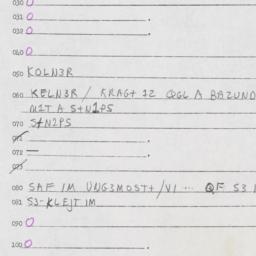 030 O
031 O .
032 O .
040 O
050 KOLN3R
060 KELN3R / KRAG+ 12 QGL A BAZUND
MIT A S+N1PS
070 S+N2PS
071 .
072 — .
073
080 SAF IM UNG3MOST+/VI ... QF S3 I
081 S3-KLEJT IM
090 O
100 O .